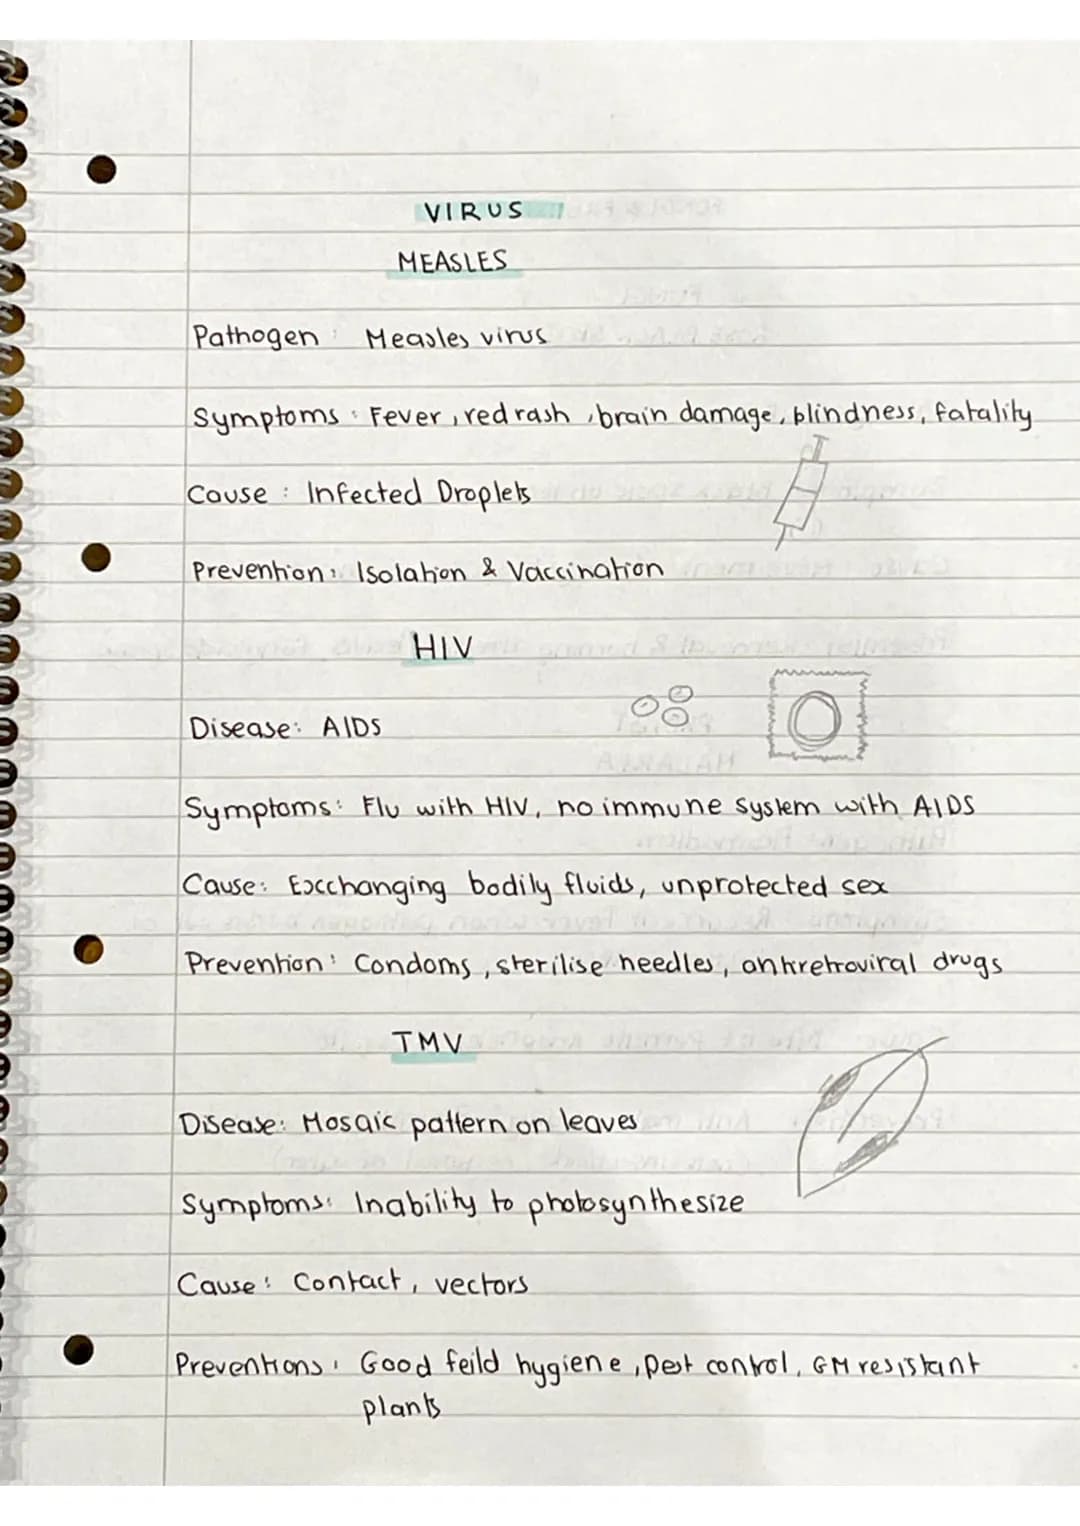 VIRUS
MEASLES
Pathogen : Measles virus
Symptoms : Fever, red rash, brain damage, blindness, fatality
Cause : Infected Droplets
Prevention: Isolation & Vaccination
HIV
Disease: AIDS
Symptoms: Flu with HIV, no immune system with AIDS
Cause: Excchanging bodily fluids, unprotected sex
Prevention: Condoms, sterilise needles, antiretroviral drugs
TMV
Disease: Mosaic pattern on leaves
Symptoms: Inability to photosynthesize
Cause: Contact, vectors
Preventions: Good feild hygiene, pest control, GM resistant
plants